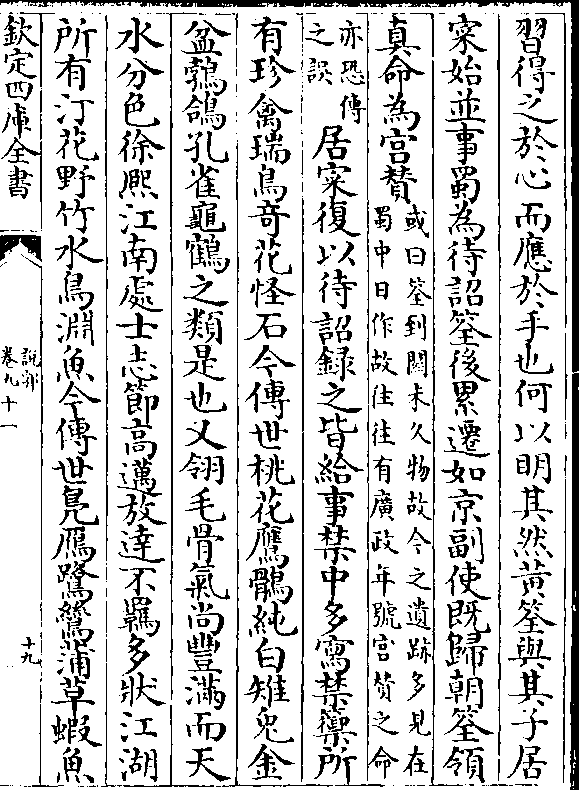 習得之於心而應於手也何以明其然黄筌與其子居
寀始並事蜀為待詔筌後累遷如京副使既歸朝筌領
真命為宫賛
或曰筌到闕未久物故今之遺跡多見在
蜀中日作故往往有廣政年號宫賛之命
亦恐傳
之誤
居寀復以待詔録之皆給事禁中多寫禁籞所
有珍禽瑞鳥竒花怪石今傳世桃花鷹鶻純白雉兔金
盆鵓鴿孔雀龜鶴之類是也又翎毛骨氣尚豐滿而天
水分色徐熈江南處士志節高邁放達不羈多狀江湖
所有汀花野竹水鳥淵魚今傳世鳬鴈鷺鷥蒲草蝦魚
欽定四庫全書
說郛
卷九十一
十九